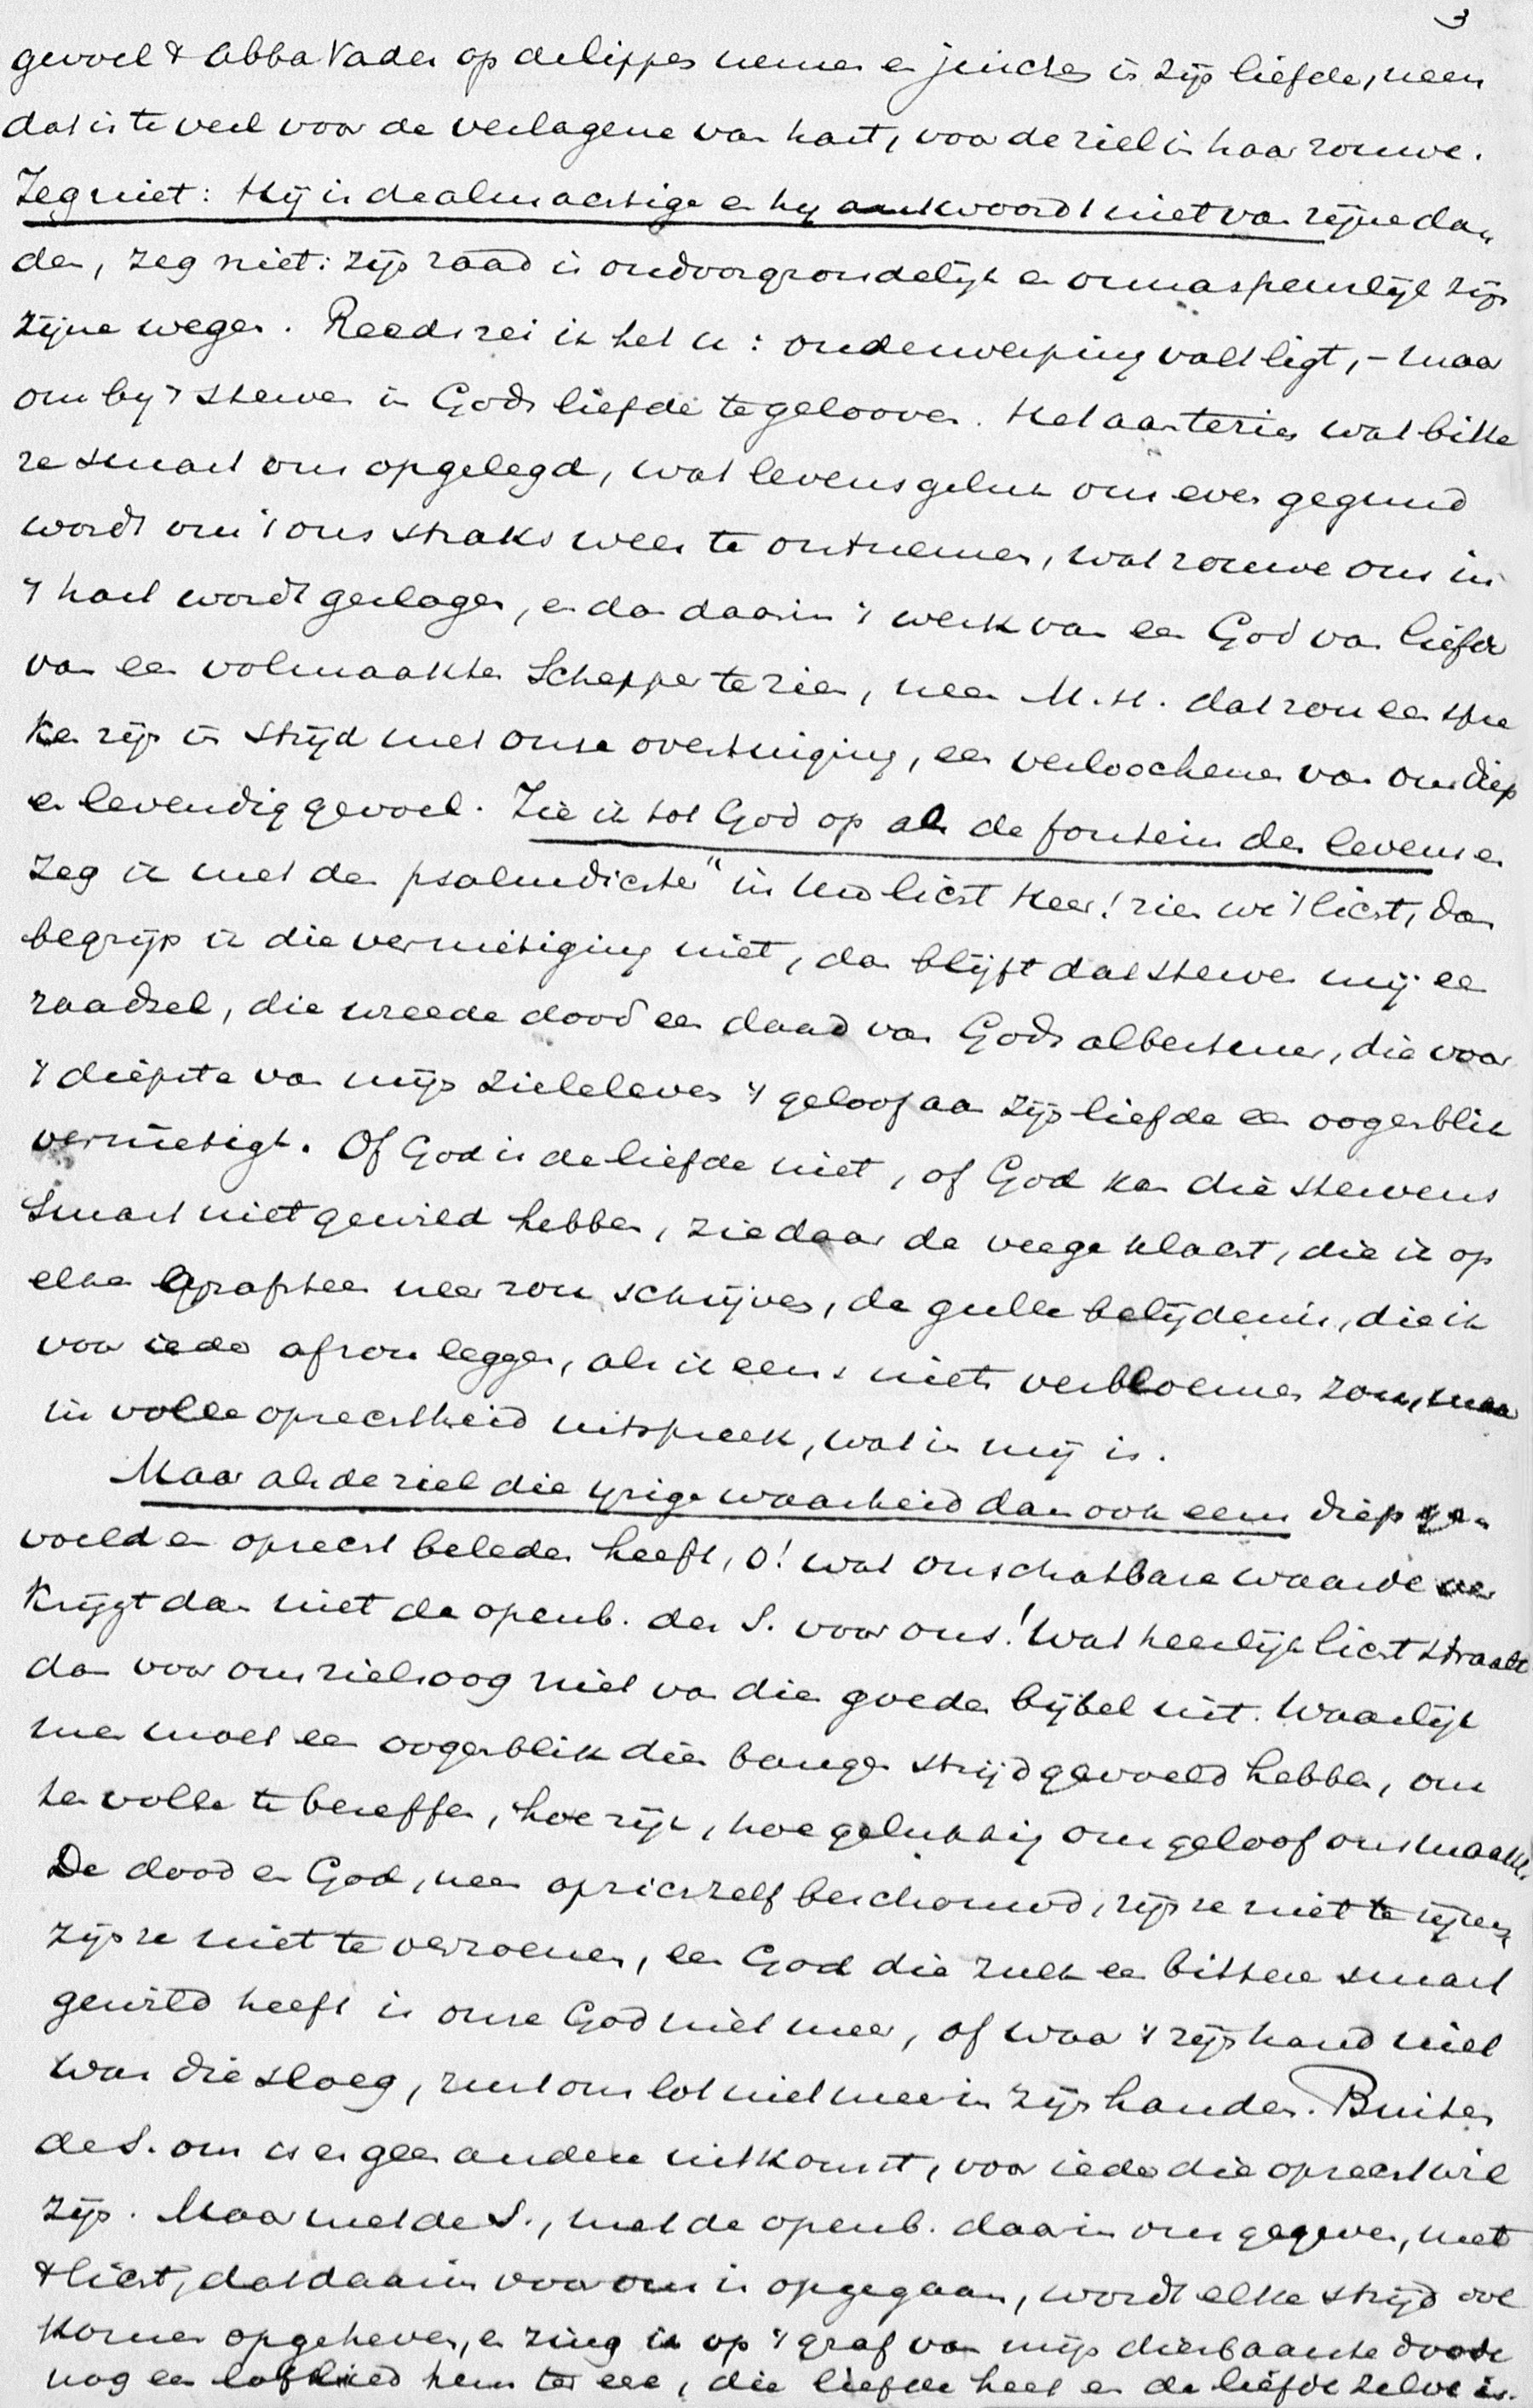 3
gevoel 't Abba Vader op de lippen nemen en juichen in zijn liefde, neen
dat is te veel voor de verslagene van hart, voor de ziel in haar rouwe.
Zeg niet: Hij is de almachtige en hij antwoordt niet van zijne da-
den, zeg niet: zijn raad is ondoorgrondelijk en onnaspeurlijk zijn
zijne wegen. Reeds zei ik het u: onderwerping valt ligt, - maar
om bij 't sterven in Gods liefde te gelooven. Het aan te zien wat bitte
re smart ons opgelegd, wat levensgeluk ons even gegund
wordt om 't ons straks weer te ontnemen, wat rouwe ons in
't hart wordt geslagen, en dan daarin 't werk van een God van liefde
van een volmaakten Schepper te zien, neen M. H. dat zou een spre
ken zijn in strijd met onze overtuiging, een verloochenen van ons diep
en levendig gevoel. Zie ik tot God op als de fontein des levens en
zeg ik met den psalmdichter "in Uw licht Heer! zien we 't licht, dan
begrijp ik die vernietiging niet, dan blijft dat sterven mij een
raadsel, die wreede dood een daad van Gods albestuur, die voor
't diepste van mijn zieleleven 't geloof aan zijn liefde een oogenblik
vernietigt. Of God is de liefde niet, of God kan die stervens
smart niet gewild hebben, ziedaar de veege klacht, die ik op
elken grafsteen neer zou schrijven, de gulle belijdenis, die ik
voor ieder af zou leggen, als ik eens niets verbloemen zou, maar
in volle oprechtheid uitspreek, wat in mij is.
Maar als de ziel die ijzige waarheid dan ook eens diep ge-
voeld en oprecht beleden heeft, o! wat onschatbare waarde ver
krijgt dan niet de openb. der S. voor ons! Wat heerlijk licht straalt
dan voor ons zielsoog niet van dien goeden bijbel uit. Waarlijk
men moet een oogenblik dien bangen strijd gevoeld hebben, om
ten volle te beseffen, hoe rijk, hoe gelukkig ons geloof ons maakt.
De dood en God, neen op zich zelf beschouwd, zijn ze niet te rijmen,
zijn ze niet te verzoenen, een God die zulk een bittere smart
gewild heeft is onze God niet meer, of waar 't zijn hand niet
was die sloeg, rust ons lot niet meer in zijn handen. Buiten
de S. om is er geen andere uitkomst, voor ieder die oprecht wil
zijn. Maar met de S., met de openb. daarin ons gegeven, met
't licht, dat daarin voor ons is opgegaan, wordt elke strijd vol
komen opgeheven, en zing ik op 't graf van mijn dierbaarste doode
nog een loflied hem ter eere, die liefde heet en de liefde zelve is.